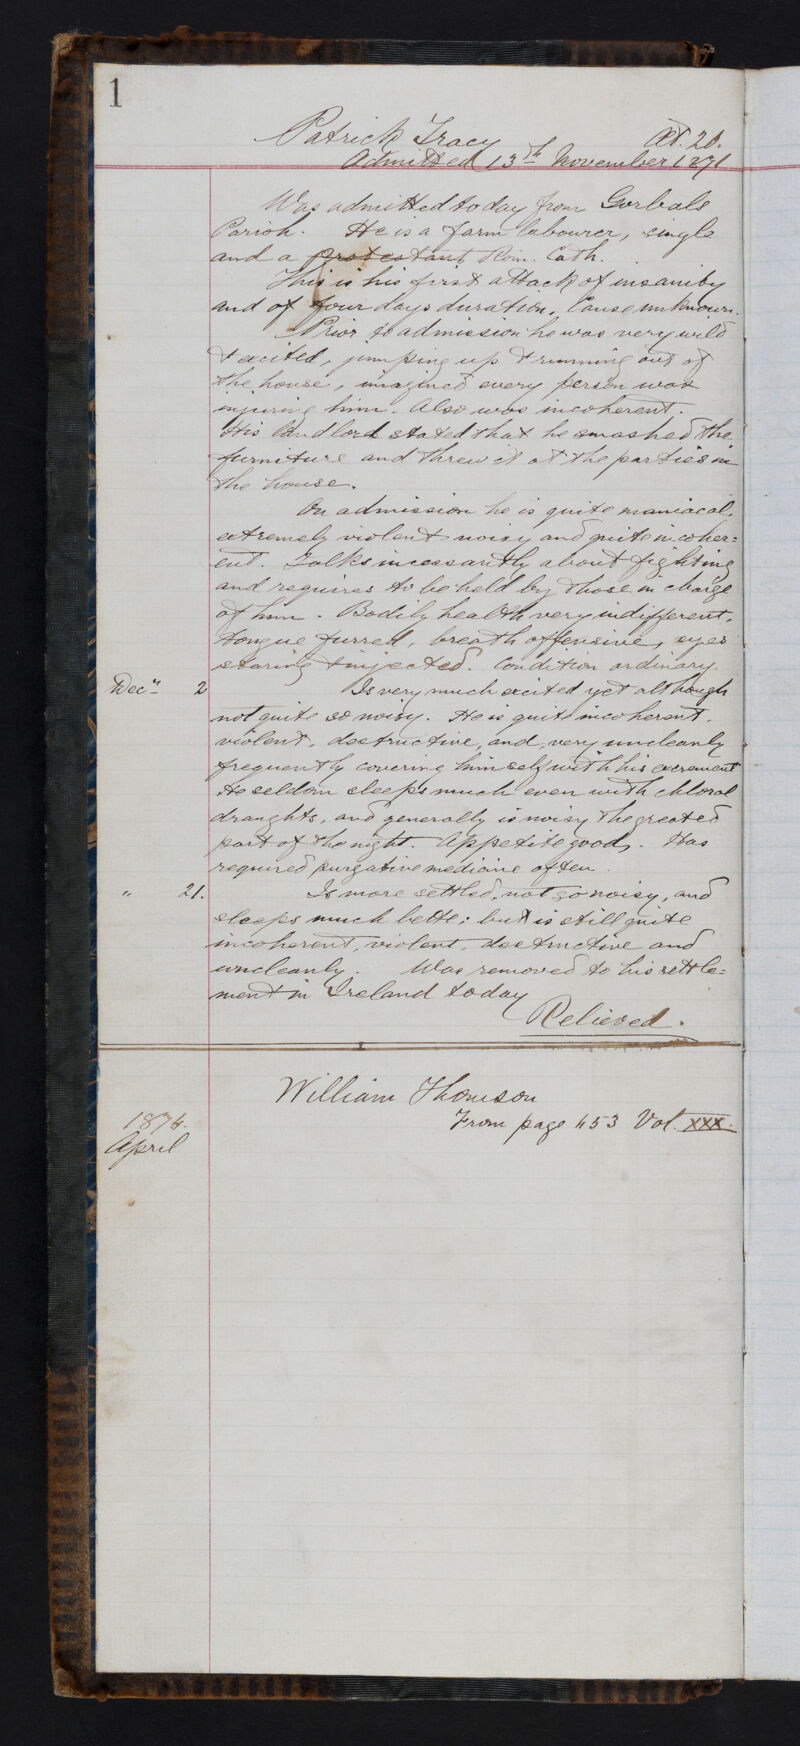 1
Patrick Tracy Æt. 20.
Admitted 13th November 1871
Was admitted today from Gorbals
Parish. He is a farm labourer, single
and a protestant Rom. Cath.
This is his first attack of insanity
and of four days duration. Cause unknown.
Prior to admission he was very wild
& excited, jumping up & running out of
the house, imagined every person was
injuring him. Also was incoherent.
His landlord stated that he smashed the
furniture and threw it at the parties in
the house.
On admission he is quite maniacal,
extremely violent noisy and quite incoher=
ent. Talks incessantly about fighting
and requires to be held by those in charge
of him. Bodily health very indifferent,
tongue furred, breath offensive, eyes
staring & injected. Condition ordinary.
Decr 2 Is very much excited yet although
not quite so noisy. He is quite incoherent,
violent, destructive, and very uncleanly
frequently covering himself with his excrement
He seldom sleeps much even with chloral
draughts, and generally is noisy the greated
part of the night. Appetite good. Has
required purgative medicine often.
" 21. Is more settled, not so noisy, and
sleeps much bette; but is still quite
incoherent, violent, destructive and
uncleanly. Was removed to his settle=
ment in Ireland today
Relieved.
William Thomson
1874. From page 453 Vol. XXX.
April